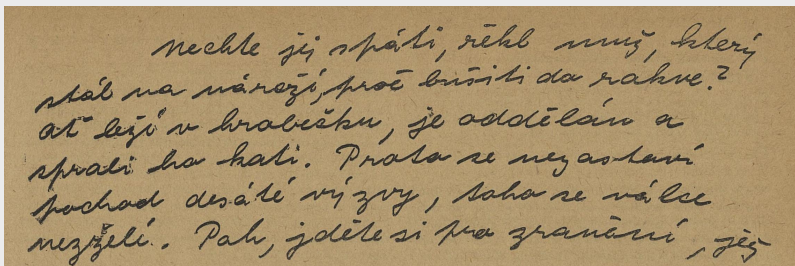 Nechte jej spáti, řekl muž, který
stál na nároží, proč bušiti do rakve?
ať leží v hrobečku, je oddělán a
sprali ho kati. Proto se nezastaví
pochod desáté výzvy, toho se válce
nezželí. Pak, jděte si pro zranění, jež